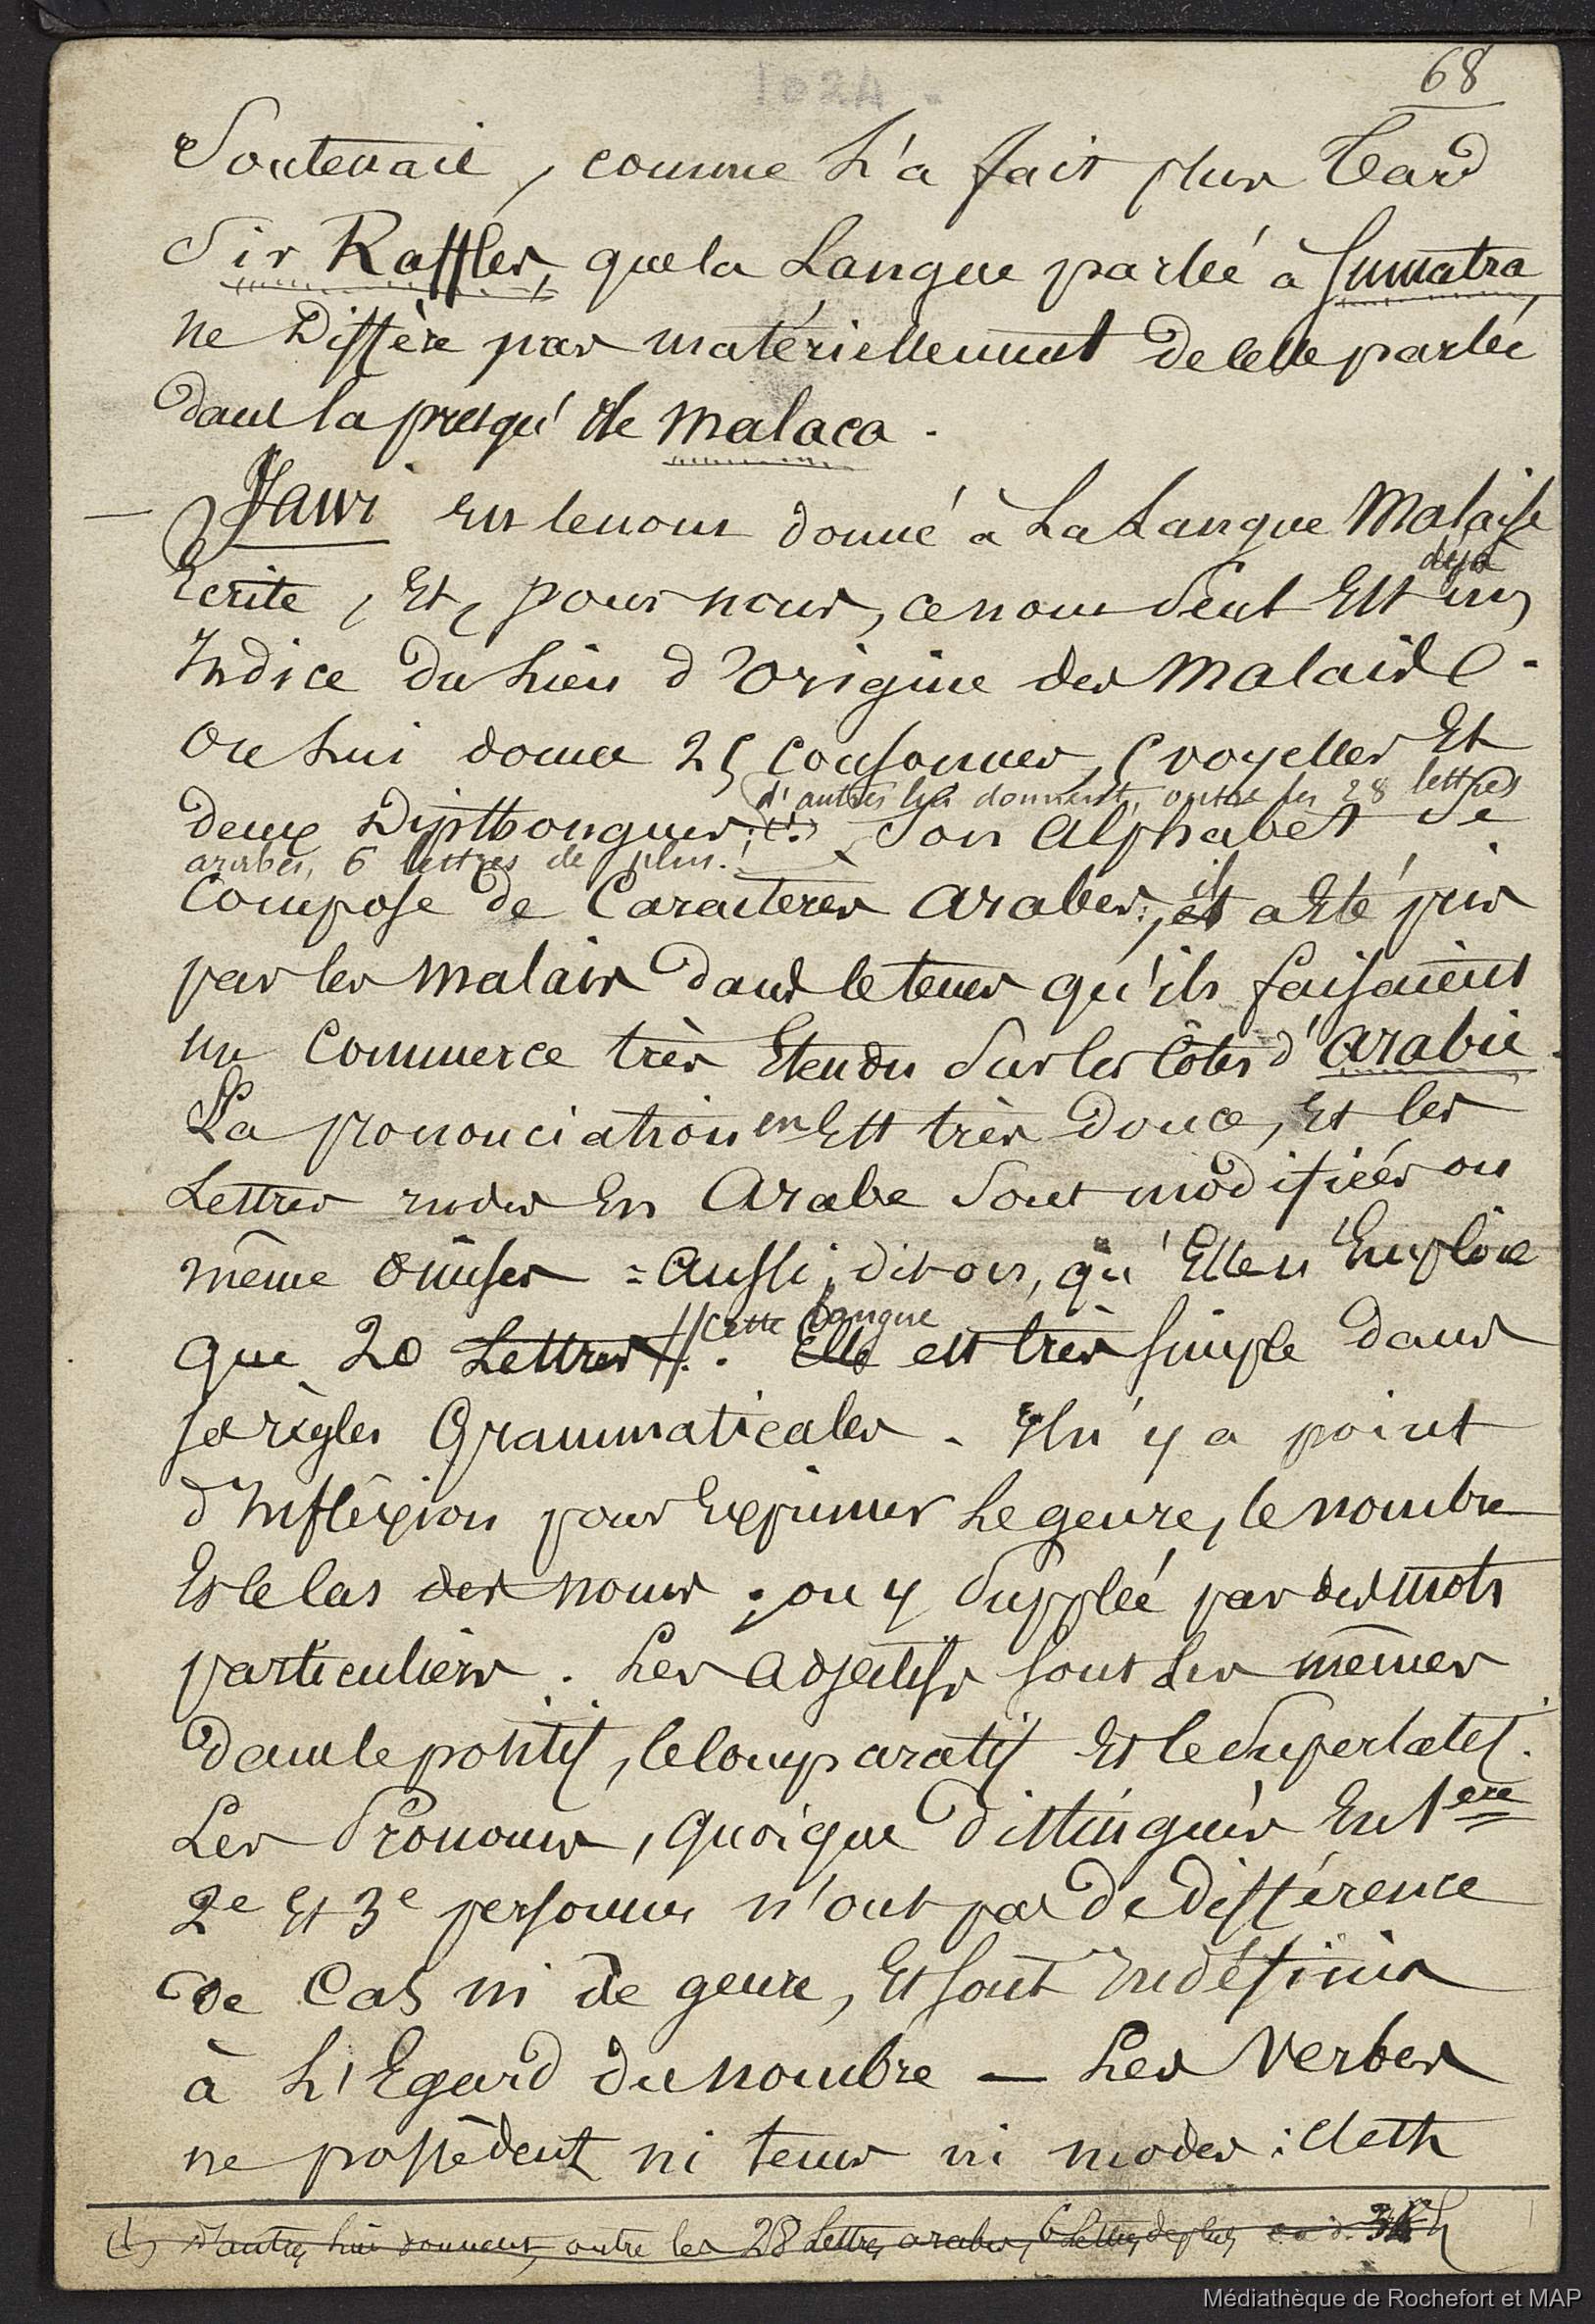 68
Soutenait, comme L'a fait plus Tard
Sir Raffles, que la Langue parlée à Sumatra
ne Diffère pas matériellement de celle parlée
dans la presqu'île Malaca.
— Jawi Est le nom donné à La Langue Malaise
Ecrite, Et, pour nous, ce nom Seul Est déjà un
Indice du Lieu d'Origine des Malais.
On Lui donne 25 Consonnes, 5 voyelles Et
deux Dipthongues; d'autres lui donnent, outre les 28 lettres
arabes, 6 lettres de plus. Son Alphabet Se
Compose de Caractères Arabes; il a Eté pris
par les Malais dans le tems qu'ils faisaient
un Commerce très Etendu Sur les Côtes d'Arabie.
La prononciation en Est très Douce, Et les
Lettres rudes En Arabe Sont modifiées ou
même omises = Aussi, dit-on, qu'Elle n'Emploie
que 20 Lettres. Elle Cette Langue est très Simple dans
ses règles Grammaticales. Il n'y a point
d'Infléxion pour Exprimer Le genre, le nombre
Et le cas des noms; on y Supplée par des mots
particuliers. Les Adjectifs sont Les mêmes
dans le positif, le Comparatif Et le Superlatif.
Les Pronoms, quoique Distingués En 1ere
2e Et 3e personnes n'ont pas De Différence
de Cas ni de genre, Et sont Indéfinis
à L'Egard du nombre — Les Verbes
ne possèdent ni tems ni modes: C'est
(1) D'autres Lui donnent, outre les 28 Lettres arabes, 6 Lettres de plus, c. a d. 34
Médiathèque de Rochefort et MAP